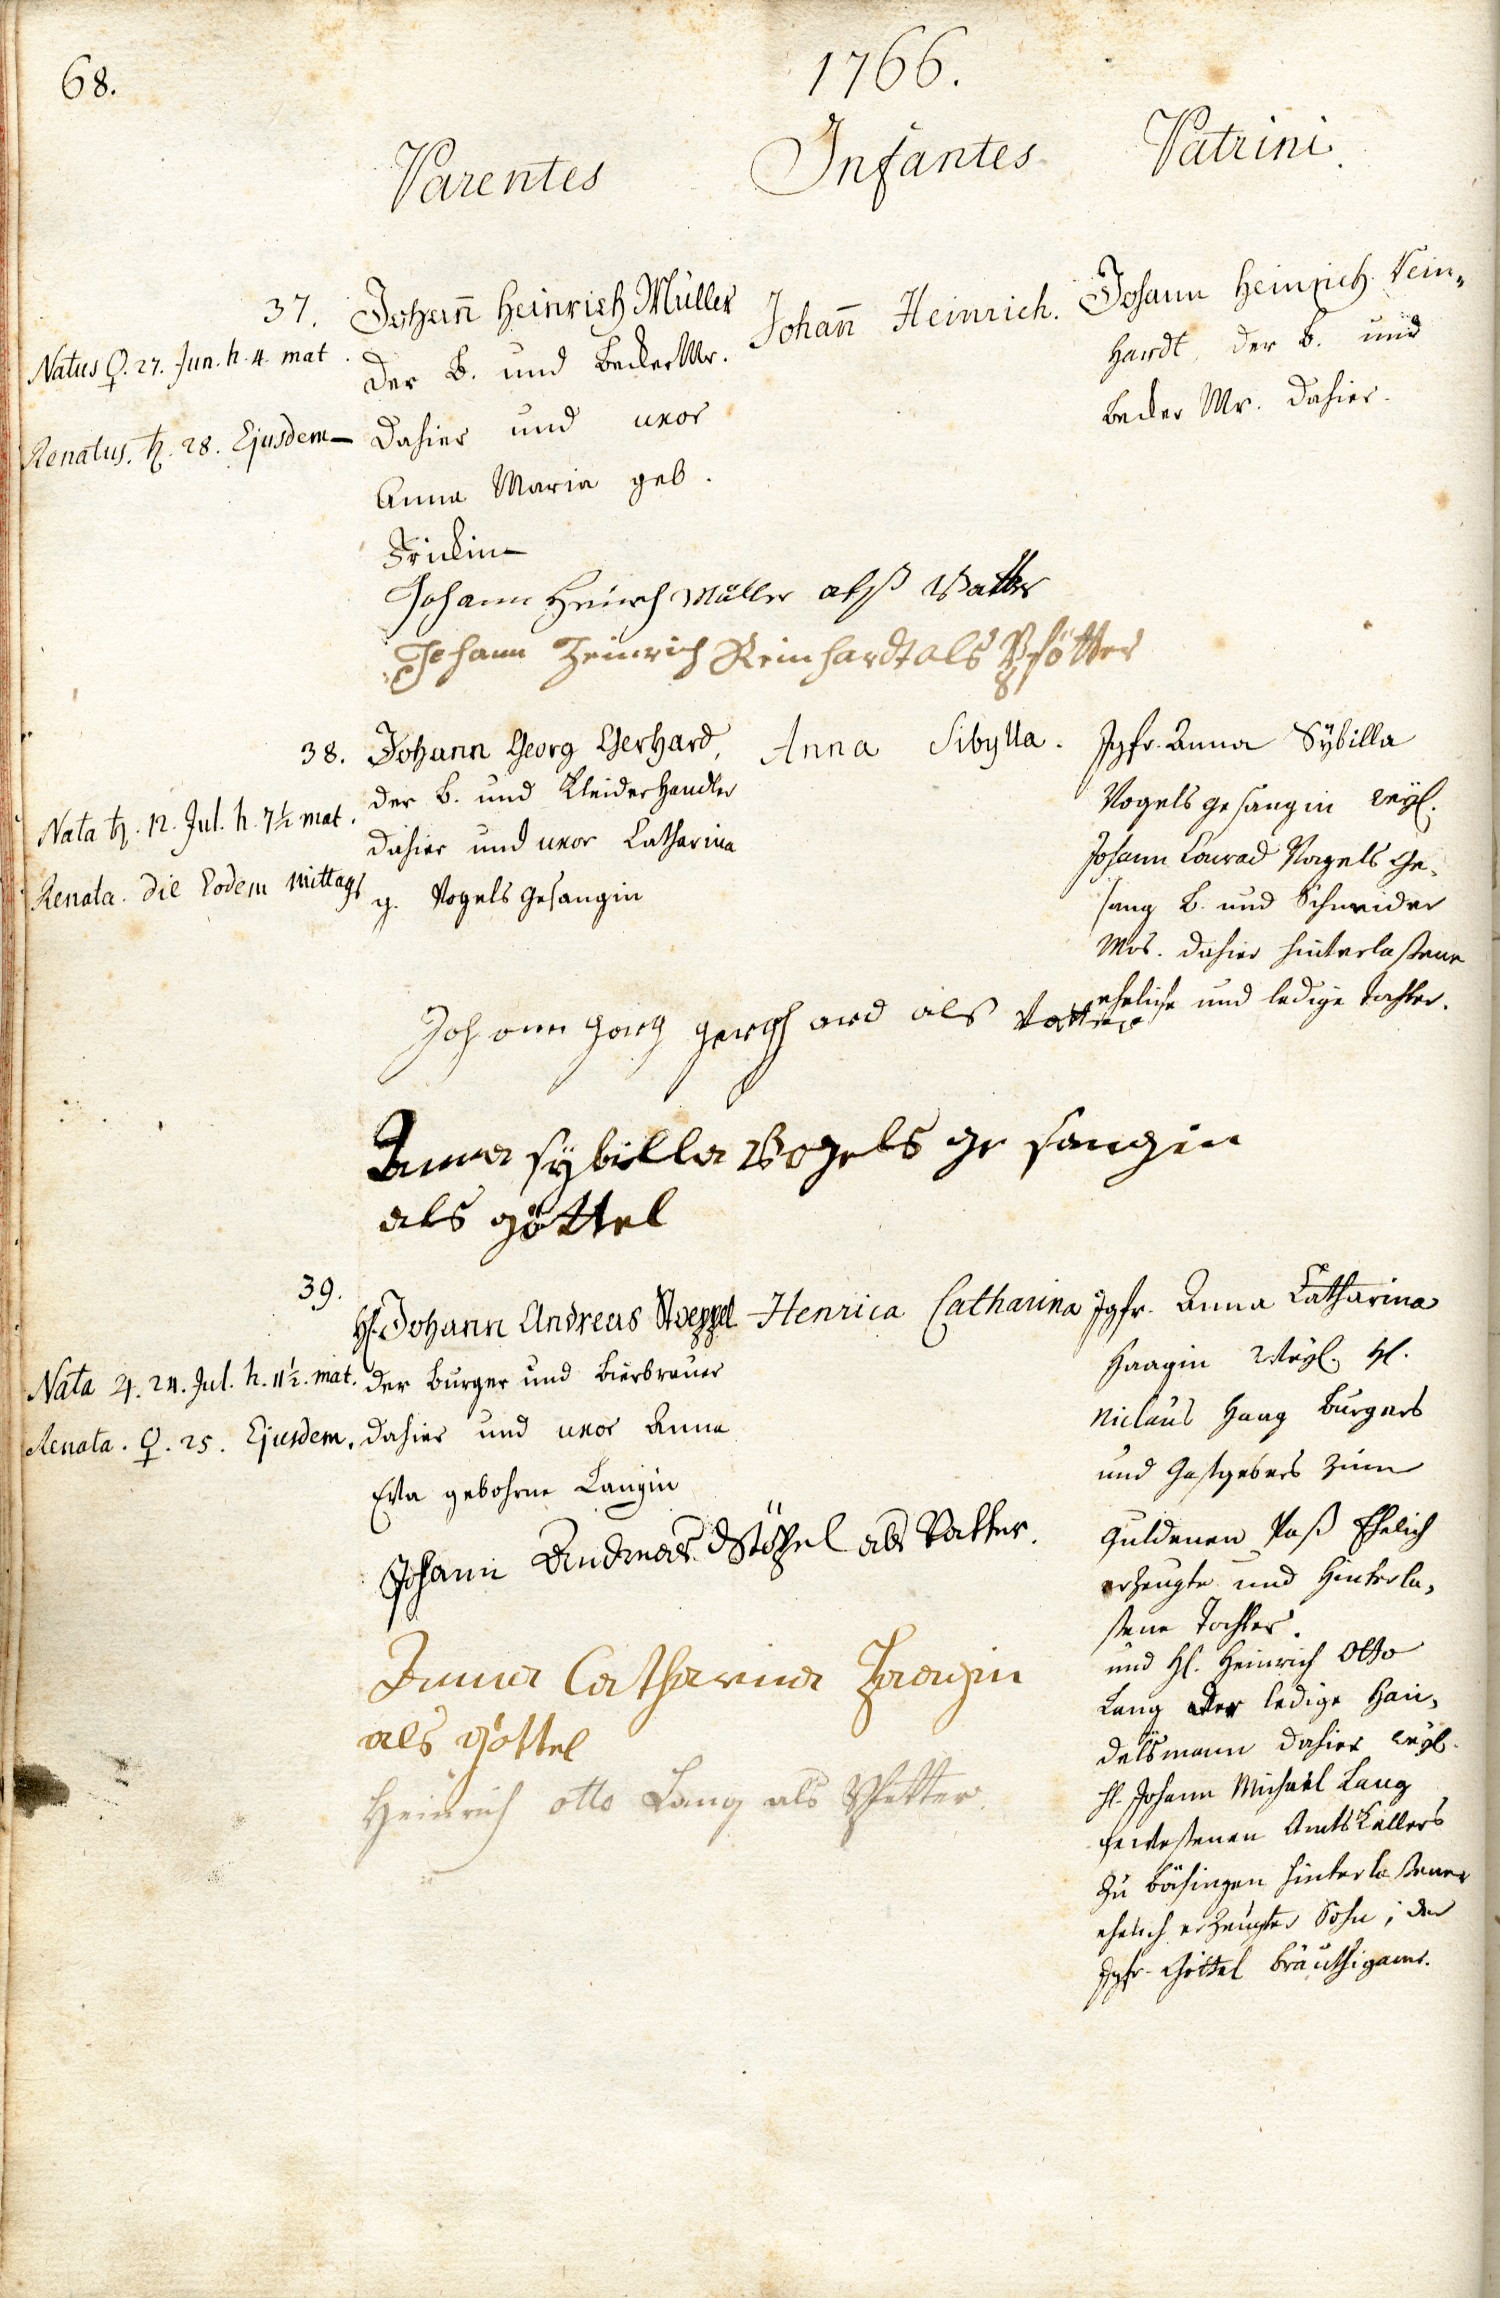 68.
1766.
Parentes Infantes Patrini.
37.
Natus ♀. 27. Jun. h. 4. mat.
Renatus. ♄. 28. Ejusdem
Johann̄ Heinrich Müller
der B. und Becker Mr.
dahier und uxor
Anna Maria geb.
Frickin
Johann̄ Heinrich.
Johann Heinrich Rein„
hardt, der B. und
Becker Mr. dahier.
Johann Heinrich Müller alß Vatter
Johann Heinrich Reinhardt als Pfötter
38.
Nata ♄. 12. Jul. h. 7½ mat.
Renata. die Eodem mittags
Johann Georg Gerhard,
der B. und Kleiderhandler
dahier und uxor Catharina
g. Vogelsgesangin
Anna Sibylla.
Jgfr. Anna Sybilla
Vogelsgesangin weyl.
Johann Conrad Vogelsge„
sang B. und Schneider
Mrs. dahier hinterlaßene
eheliche und ledige Tochter.
Johann Georg Gerhard als Vatter
Anna Sybilla Vogels ge sangin
als göttel
39.
Nata ♃. 24. Jul. h. 11½. mat.
Renata. ♀. 25. Ejusdem.
H. Johann Andreas Stoeppel
der Burger und Bierbrauer
dahier und uxor Anna
Eva gebohrne Langin
Henrica Catharina
Jgfr. Anna Catharina
Haagin Weyl. H.
Niclaus Haag Burgers
und Gastgebers zum
Guldenen Roß Ehelich
erzeugte und hinterla„
ßene Tochter.
und H. Heinrich Otto
Lang der ledige Han„
delsmann dahier weyl.
H. Johann Michael Lang
gewesenen Amts Kellers
zu hinterlaßener
ehelich erzeugter Sohn, der
Jgfr. Göttel Bräuthigam.
Johann Andreas Stöppel als Vatter.
Anna Catharina Haagin
als göttel
Heinrich Otto Lang als Pfetter.